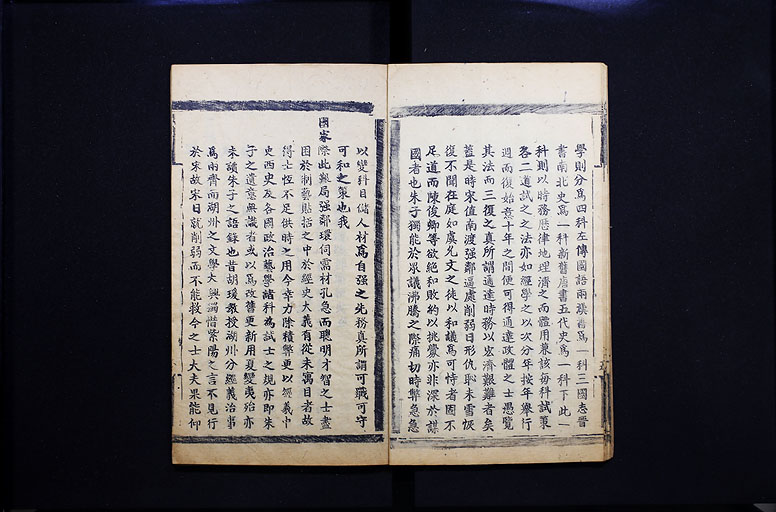 學則分爲四科左傳國語兩漢書爲一科三國志晉
書南北史爲一科新舊唐書五代史爲一科下此一
科則以時務歷律地理濟之而體用兼該每科試策
各二道試之之法亦如經學之以次分年按年舉行
週而復始意十年之間便可得通達政體之士愚覽
其法而三復之真所謂通達時務以宏濟艱難者矣
蓋是時宋值南渡强鄰逼處削弱日形仇恥未雪恢
復不聞在庭如虞允文之徒以和議爲可恃者固不
足道而陳俊卿等欲絕和敗約以挑釁亦非深於謀
國者也朱子獨能於眾議沸騰之際痛切時弊急急
以變科目儲人材爲自强之先務真所謂可戰可守
可和之策也我
國家際此艱局强鄰環伺需材孔急而聰明才智之士盡
困於制藝貼括之中於經史大義有從未寓目者故
得士恆不足供時之用今幸力除積弊更以經義中
史西史及各國政治藝學諸科為試士之規亦即朱
子之遺意無識者或以爲改舊更新用夏變夷殆亦
未讀朱子之語錄也昔胡瑗教授湖州分經義治事
爲兩齋而湖州之文學大興獨惜紫陽之言不見行
於宋故宋日就削弱而不能救今之士大夫果能仰